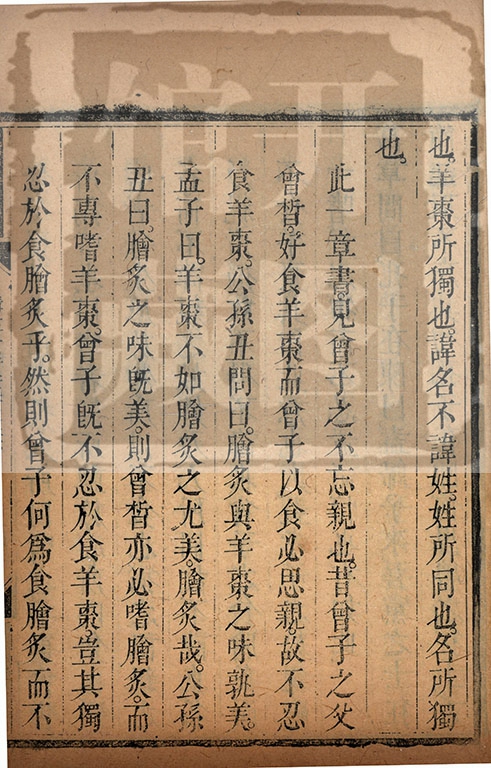 也。羊棗所獨也。諱名不諱姓。姓所同也。名所獨
也。
此一章書。見曾子之不忘親也。昔曾子之父
曾晳。好食羊棗。而曾子以食必思親。故不忍
食羊棗。公孫丑問曰。膾炙與羊棗之味孰美。
孟子曰。羊棗不如膾炙之尤美。膾炙哉。公孫
丑曰。膾炙之味旣美。則曾晳亦必嗜膾炙。而
不專嗜羊棗。曾子旣不忍於食羊棗。豈其獨
忍於食膾炙乎。然則曾子何爲食膾炙而不